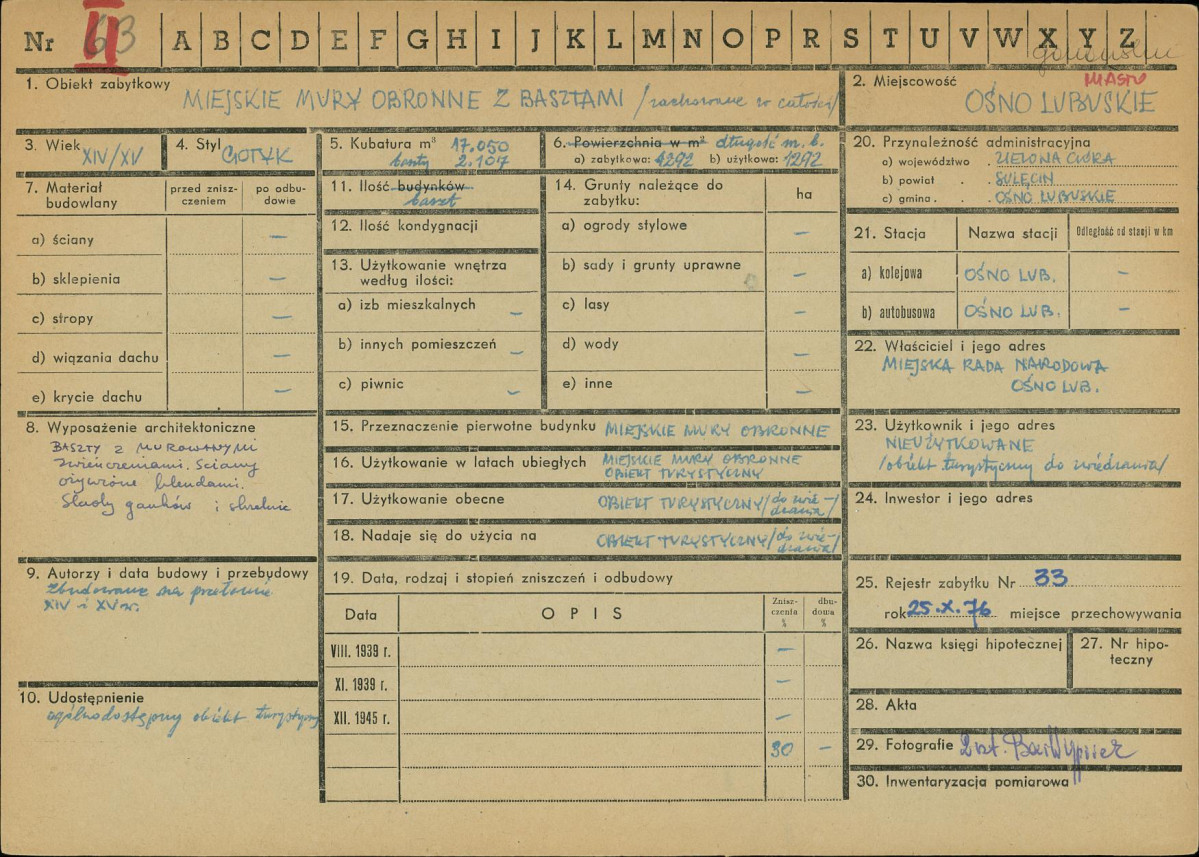 Nr 63 II A B C D E F G H I J K L M N O P R S T U V W X Y Z
1. Obiekt zabytkowy
MIEJSKIE MURY OBRONNE Z BASZTAMI /zachowane w całości/
2. Miejscowość MIASTO
OŚNO LUBUSKIE
3. Wiek
XIV/XV
4. Styl
GOTYK
5. Kubatura m³ 17.050
baszty 2.107
6. Powierzchnia w m² długość m.b.
a) zabytkowa: 1292 b) użytkowa: 1292
7. Materiał budowlany
przed zniszczeniem
po odbudowie
a) ściany –
b) sklepienia –
c) stropy –
d) wiązania dachu –
e) krycie dachu –
8. Wyposażenie architektoniczne
BASZTY Z MUROWANYMI
zwieńczeniami. Ściany
ożywione blendami.
Ślady ganków i strzelnic
9. Autorzy i data budowy i przebudowy
Zbudowane na przełomie
XIV i XV w.
10. Udostępnienie
ogólnodostępny obiekt turystyczny
11. Ilość budynków
baszt
12. Ilość kondygnacji
13. Użytkowanie wnętrza
według ilości:
a) izb mieszkalnych –
b) innych pomieszczeń –
c) piwnic –
14. Grunty należące do
zabytku:
ha
a) ogrody stylowe –
b) sady i grunty uprawne –
c) lasy –
d) wody –
e) inne –
15. Przeznaczenie pierwotne budynku MIEJSKIE MURY OBRONNE
16. Użytkowanie w latach ubiegłych MIEJSKIE MURY OBRONNE
OBIEKT TURYSTYCZNY
17. Użytkowanie obecne OBIEKT TURYSTYCZNY /do zwie-
dzania/
18. Nadaje się do użycia na OBIEKT TURYSTYCZNY /do zwie-
dzania/
19. Data, rodzaj i stopień zniszczeń i odbudowy
Data
OPIS
Zniszczenia %
dbudowa %
VIII. 1939 r. –
XI. 1939 r. –
XII. 1945 r. –
30 –
20. Przynależność administracyjna
a) województwo . ZIELONA GÓRA
b) powiat . . SULĘCIN
c) gmina . . OŚNO LUBUSKIE
21. Stacja
Nazwa stacji
Odległość od stacji w km
a) kolejowa OŚNO LUB. –
b) autobusowa OŚNO LUB. –
22. Właściciel i jego adres
MIEJSKA RADA NARODOWA
OŚNO LUB.
23. Użytkownik i jego adres
NIEUŻYTKOWANE
/obiekt turystyczny do zwiedzania/
24. Inwestor i jego adres
25. Rejestr zabytku Nr 33
rok 25.X.76 miejsce przechowywania
26. Nazwa księgi hipotecznej
27. Nr hipo-
teczny
28. Akta
29. Fotografie
30. Inwentaryzacja pomiarowa